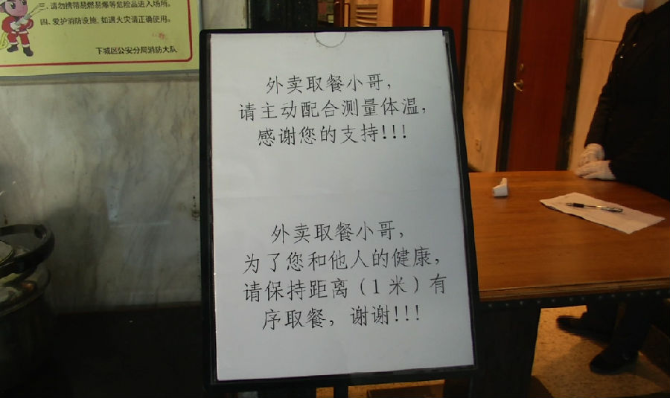 请勿携带易燃易爆等危险品进入场所。
四、爱护消防设施，如遇火灾请正确使用。
下城区公安分局消防大队
外卖取餐小哥，
请主动配合测量体温，
感谢您的支持!!!
外卖取餐小哥，
为了您和他人的健康，
请保持距离（1米）有
序取餐，谢谢!!!